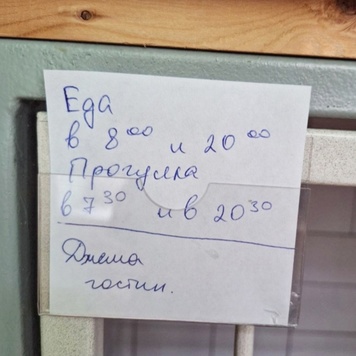 Еда
в 8⁰⁰ и 20⁰⁰
Прогулка
в 7³⁰ и в 20³⁰
Джема
гостин.